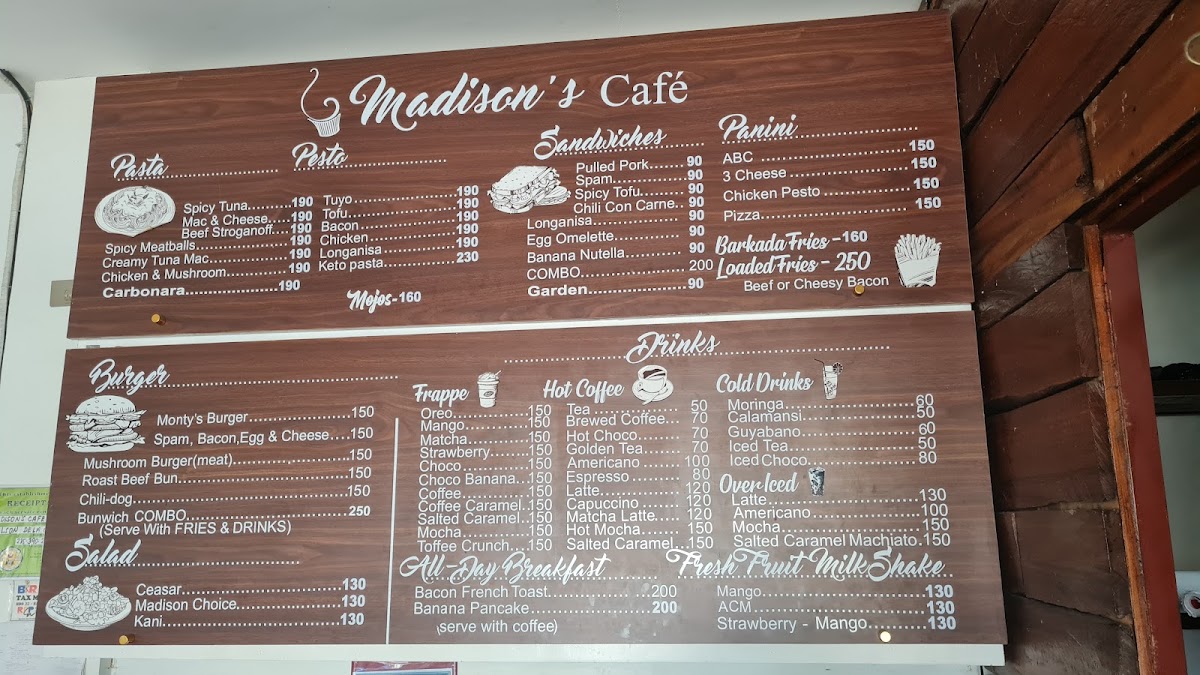 Madison's Café
Pasta
Spicy Tuna 190
Mac & Cheese 190
Beef Stroganoff 190
Spicy Meatballs 190
Creamy Tuna Mac 190
Chicken & Mushroom 190
Carbonara 190
Pesto
Tuyo 190
Tofu 190
Bacon 190
Chicken 190
Longanisa 190
Keto pasta 230
Mojos-160
Sandwiches
Pulled Pork 90
Spam 90
Spicy Tofu 90
Chili Con Carne 90
Longanisa 90
Egg Omelette 90
Banana Nutella 90
COMBO 200
Garden 90
Panini
ABC 150
3 Cheese 150
Chicken Pesto 150
Pizza 150
Barkada Fries -160
Loaded Fries - 250
Beef or Cheesy Bacon
Burger
Monty's Burger 150
Spam, Bacon,Egg & Cheese 150
Mushroom Burger(meat) 150
Roast Beef Bun 150
Chili-dog 150
Bunwich COMBO 250
(Serve With FRIES & DRINKS)
Salad
Ceasar 130
Madison Choice 130
Kani 130
Drinks
Frappe
Oreo 150
Mango 150
Matcha 150
Strawberry 150
Choco 150
Choco Banana 150
Coffee 150
Coffee Caramel 150
Salted Caramel 150
Mocha 150
Toffee Crunch 150
Hot Coffee
Tea 50
Brewed Coffee 70
Hot Choco 70
Golden Tea 70
Americano 100
Espresso 80
Latte 120
Capuccino 120
Matcha Latte 120
Hot Mocha 150
Salted Caramel 150
Cold Drinks
Moringa 60
Calamansi 50
Guyabano 60
Iced Tea 50
Iced Choco 80
Over Iced
Latte 130
Americano 100
Mocha 150
Salted Caramel Machiato 150
All-Day Breakfast
Bacon French Toast 200
Banana Pancake 200
(serve with coffee)
Fresh Fruit MilkShake
Mango 130
ACM 130
Strawberry - Mango 130